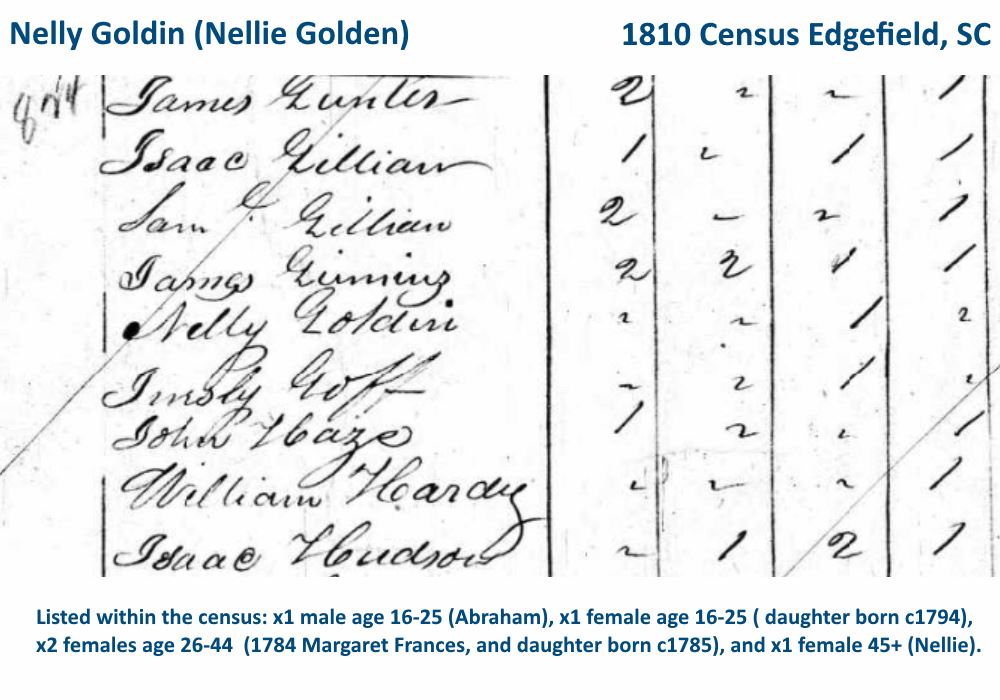 Nelly Goldin (Nellie Golden) 1810 Census Edgefield, SC
James Gunter 2 - - 1
Isaac Gillian 1 - 1 1
Sam Gillian 2 - - 1
James 2 2 1 1
Nelly Goldin - - 1 -
Goff - - 1 -
John Haze 1 - - 1
William Hardy - - - 1
Isaac Hudson - 1 2 1
Listed within the census: x1 male age 16-25 (Abraham), x1 female age 16-25 ( daughter born c1794),
x2 females age 26-44 (1784 Margaret Frances, and daughter born c1785), and x1 female 45+ (Nellie).